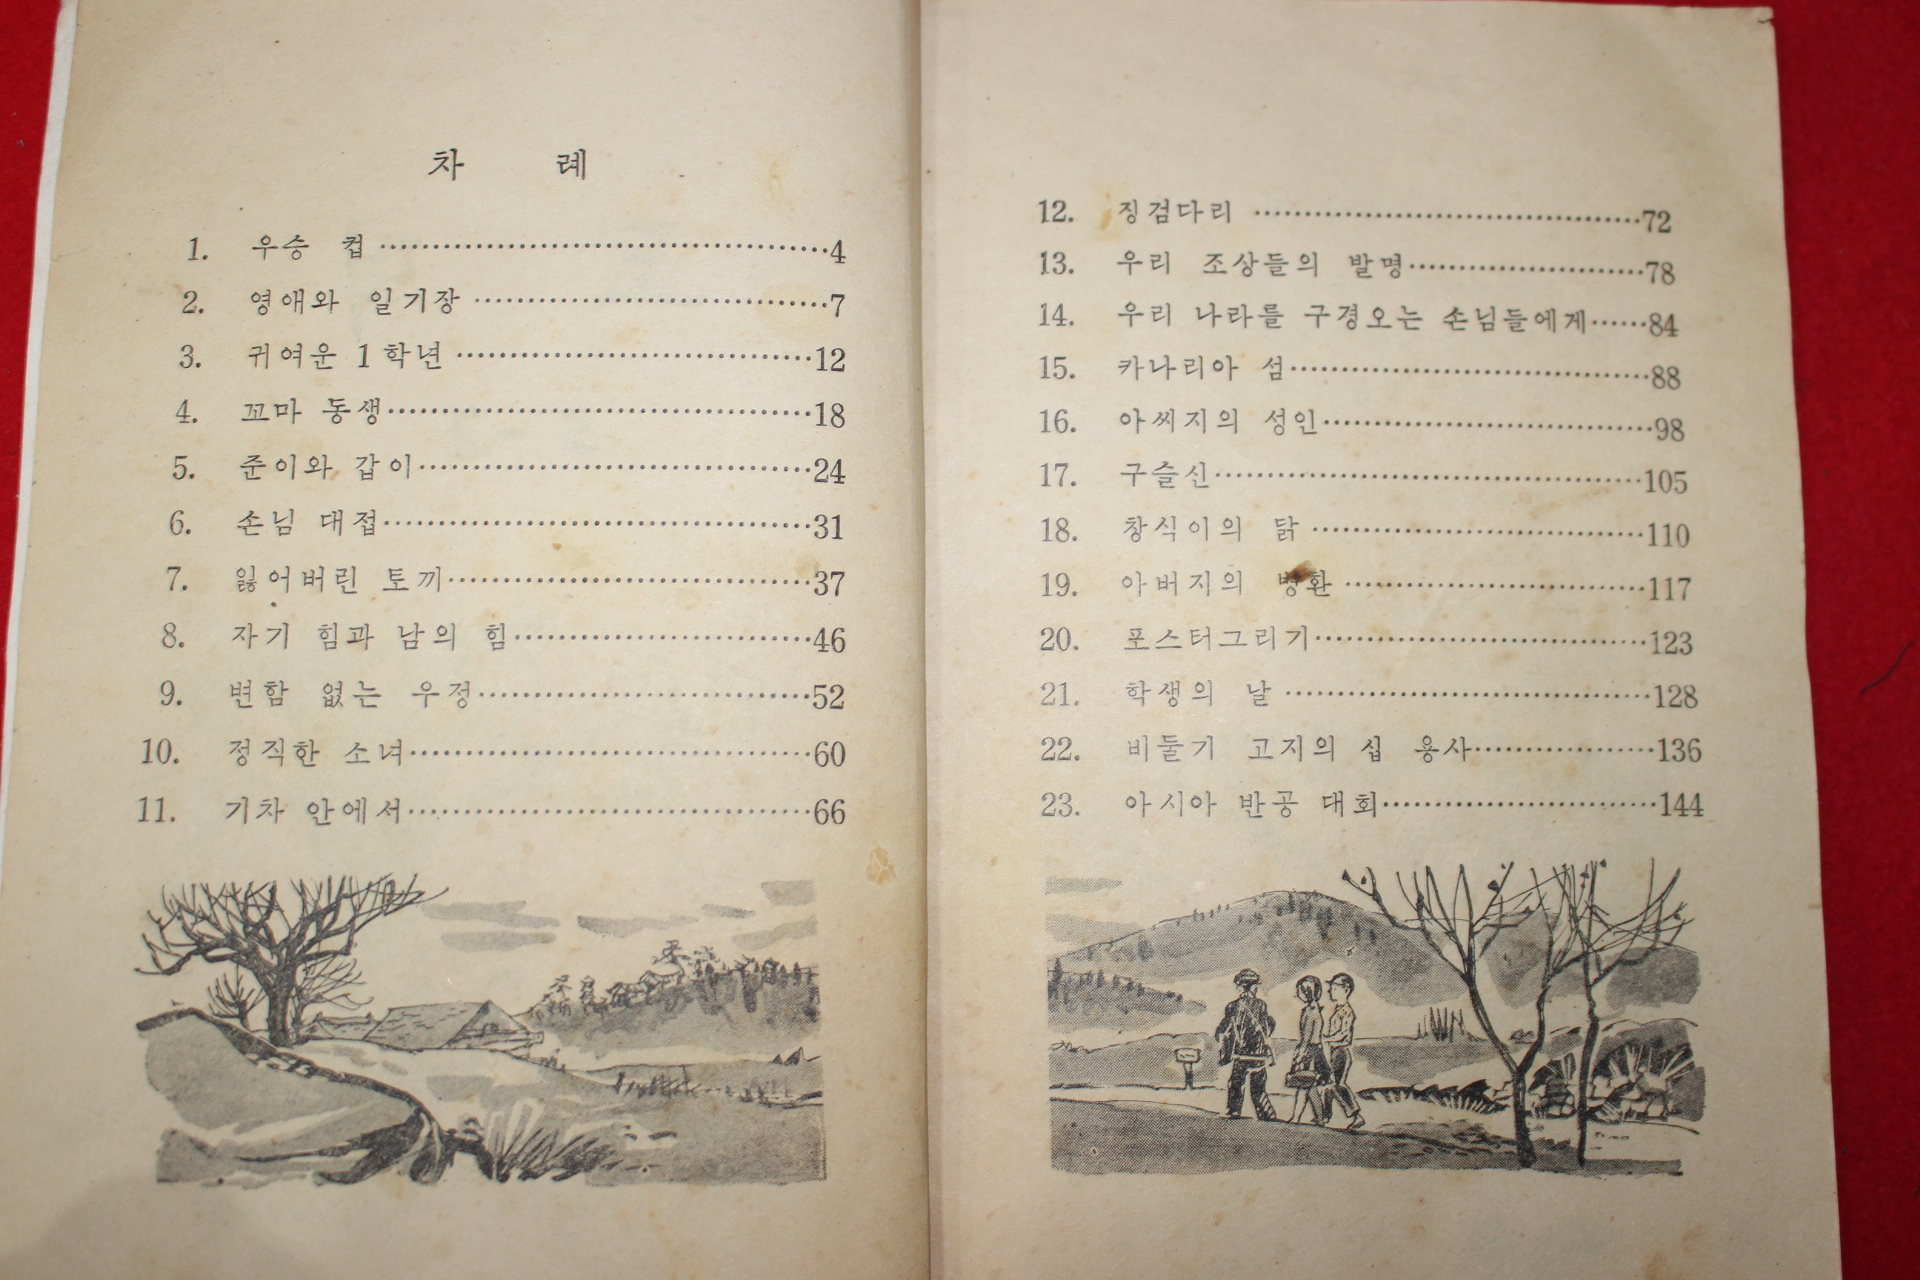 차 례
1. 우승 컵 ········ 4
2. 영애와 일기장 ········ 7
3. 귀여운 1학년 ········ 12
4. 꼬마 동생 ········ 18
5. 준이와 갑이 ········ 24
6. 손님 대접 ········ 31
7. 잃어버린 토끼 ········ 37
8. 자기 힘과 남의 힘 ········ 46
9. 변함 없는 우정 ········ 52
10. 정직한 소녀 ········ 60
11. 기차 안에서 ········ 66
12. 징검다리 ········ 72
13. 우리 조상들의 발명 ········ 78
14. 우리 나라를 구경오는 손님들에게 ········ 84
15. 카나리아 섬 ········ 88
16. 아씨지의 성인 ········ 98
17. 구슬신 ········ 105
18. 창식이의 닭 ········ 110
19. 아버지의 병환 ········ 117
20. 포스터그리기 ········ 123
21. 학생의 날 ········ 128
22. 비둘기 고지의 십 용사 ········ 136
23. 아시아 반공 대회 ········ 144